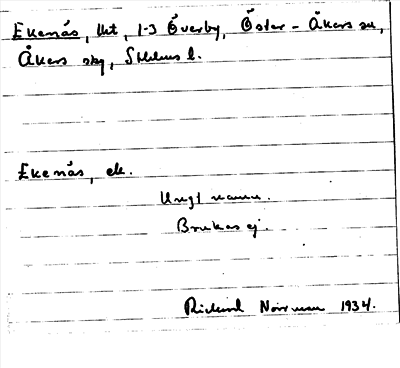 Ekenäs, lht, 1-3 Överby, Öster-Åkers sn,
Åkers sky, Sthlms l.
Ekenäs, ek.
Ungt namn.
Brukas ej.
Rickard Norrman 1934.